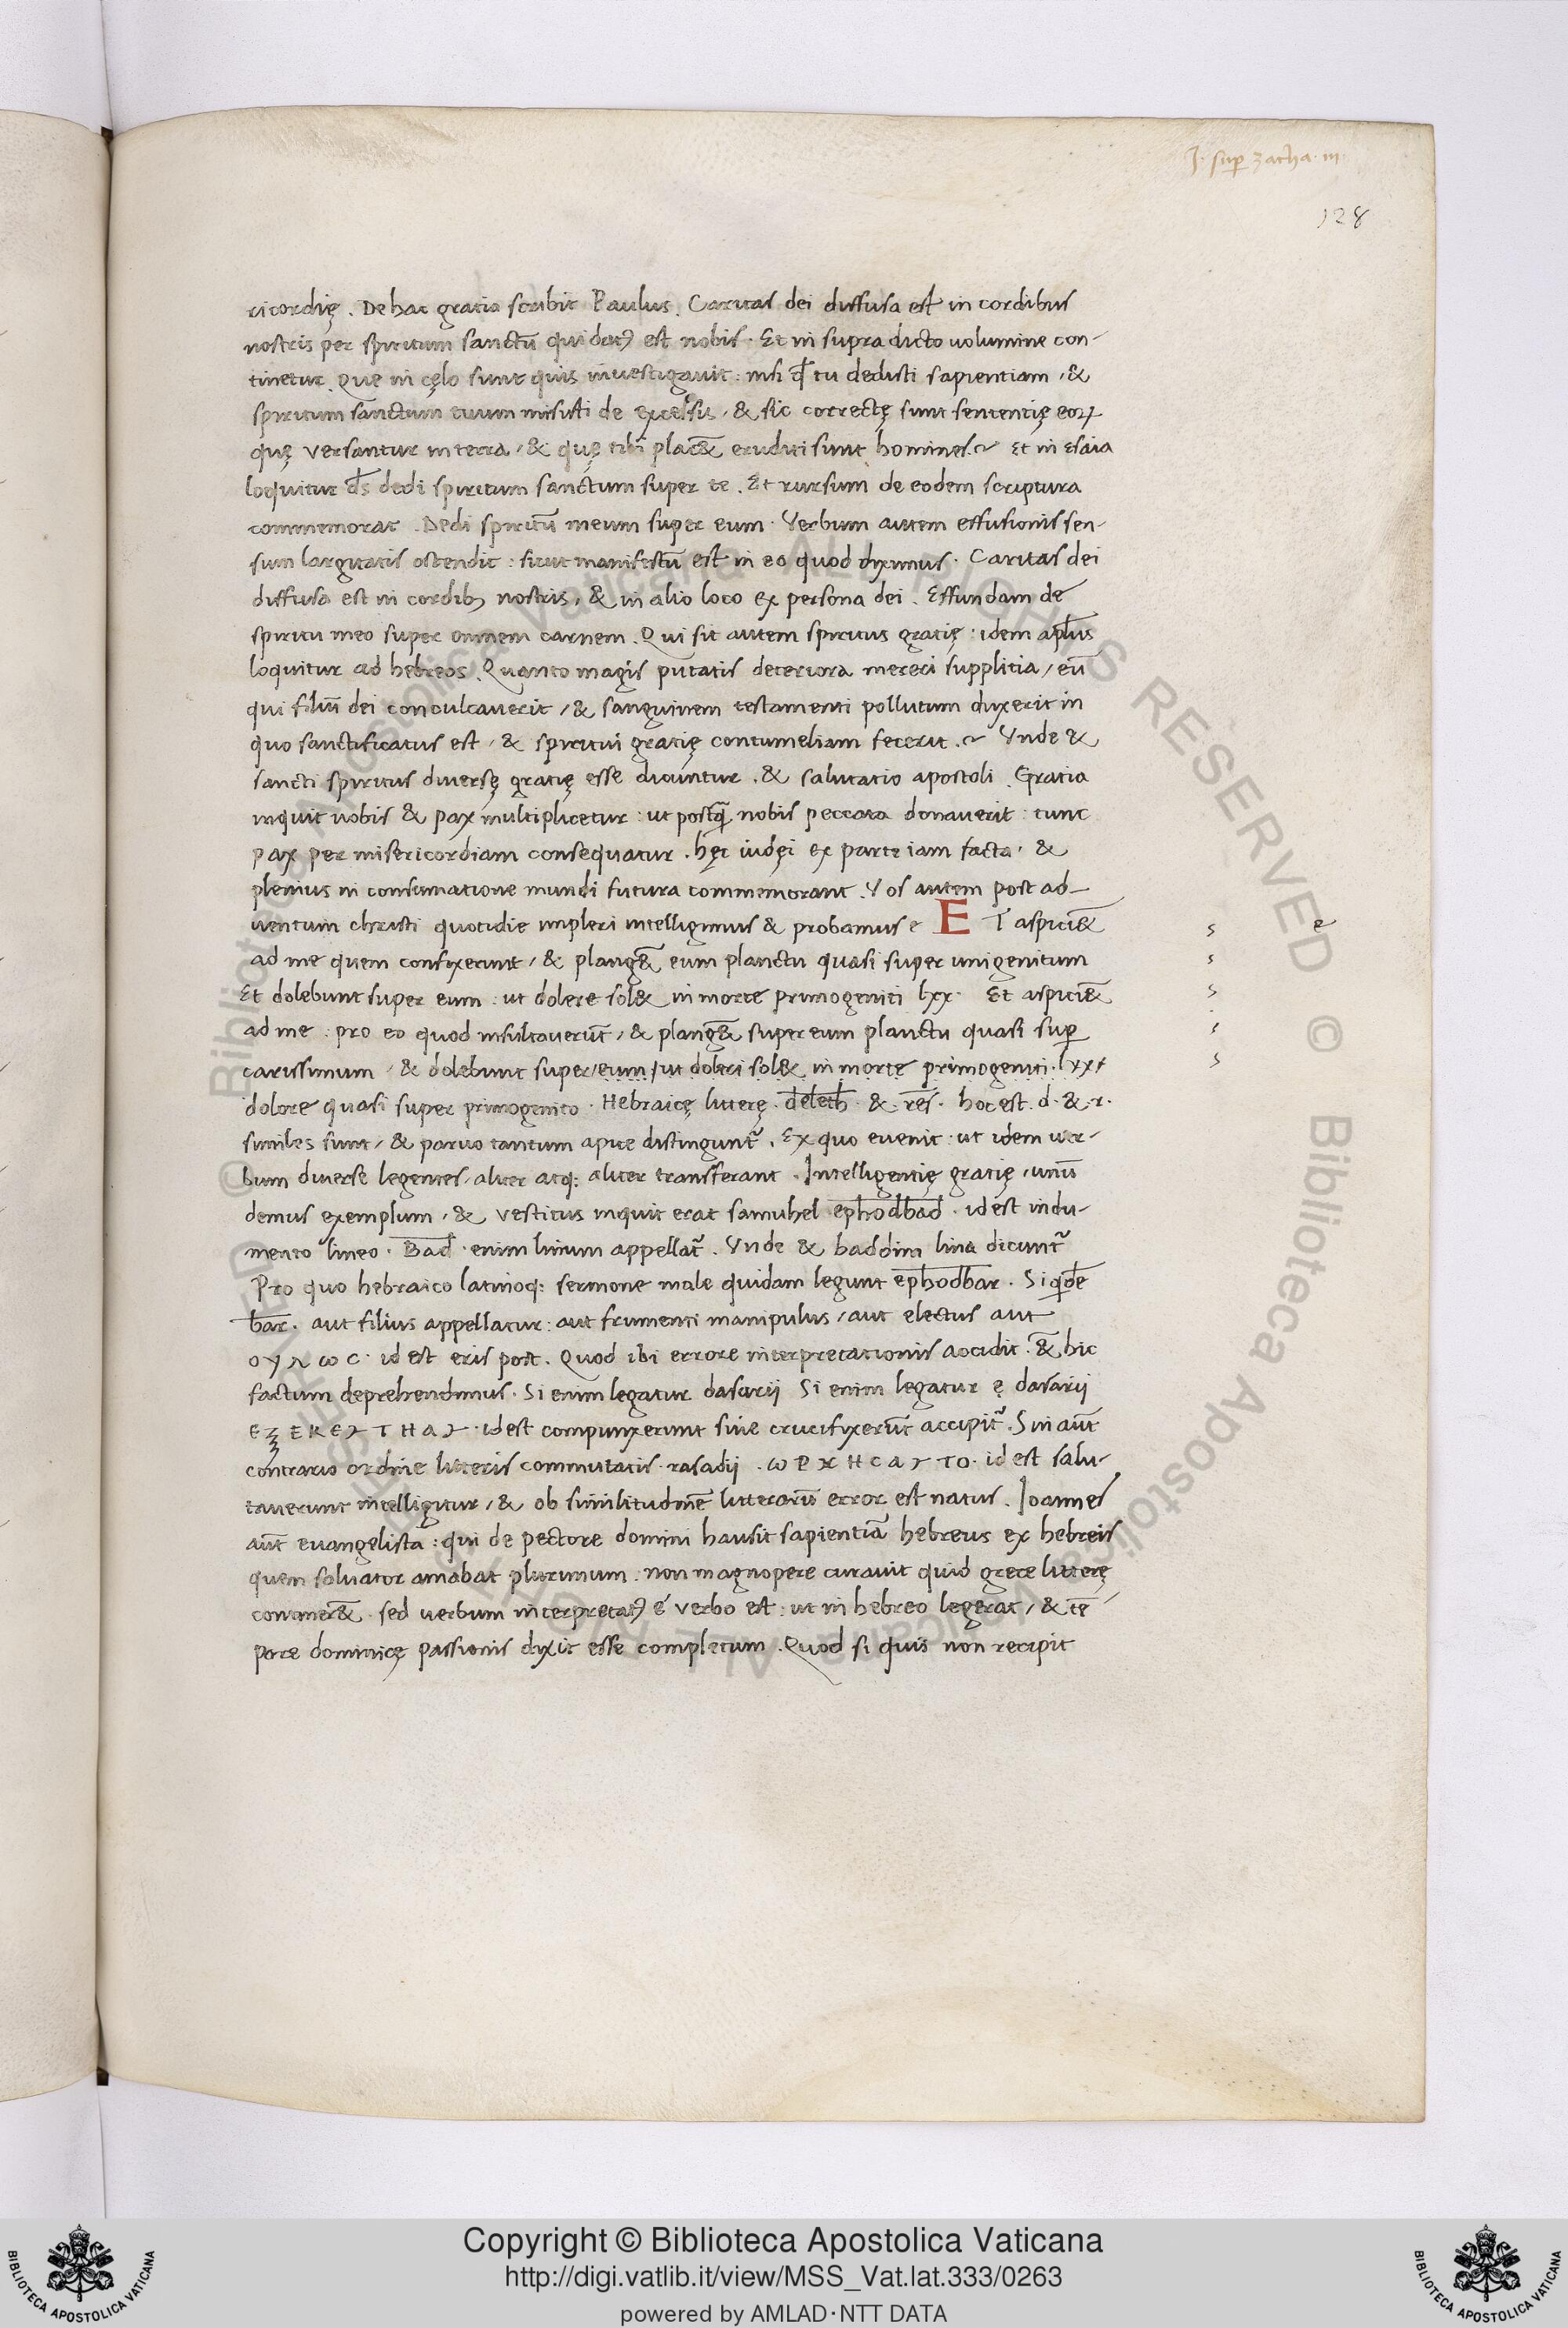 J. sup zacha. III
128
ricordię. De hac gratia scribit Paulus. Caritas dei diffusa est in cordibus
nostris per spiritum sanctū qui datꝰ est nobis. Et in supra dicto uolumine con-
tinetur. Que in cęlo sunt quis inuestigauit: nisi qđ tu dedisti sapientiam, &
spiritum sanctum tuum misisti de excelsis, & sic correctę sunt sententię eoꝝ
quę versantur in terra, & quę tibi placē& eruditi sunt homines. Et in Esaia
loquitur d̄s dedi spiritum sanctum super te. Et rursum de eodem scriptura
commemorat. Dedi spiritū meum super eum. Verbum autem effusionis sen-
sum largitatis ostendit: sicut manifestū est in eo quod diximus. Caritas dei
diffusa est in cordibꝫ nostris, & in alio loco ex persona dei. Effundam de
spiritu meo super omnem carnem. Qui sit autem spiritus gratię: idem apl̄us
loquitur ad hebreos. Quanto magis putatis deteriora mereri supplitia, eū
qui filiū dei conculcauerit, & sanguinem testamenti pollutum dyxerit in
quo sanctificatus est, & spiritui gratię contumeliam fecerit. Vnde &
sancti spiritus diuersę gratię esse dicuntur, & salutatio apostoli. Gratia
inquit uobis & pax multiplicetur: ut postq̄ nobis peccata donauerit: tunc
pax per misericordiam consequatur. hęc iudęi ex parte iam facta, &
plenius in consumatione mundi futura commemorant. Vos autem post ad-
uentum christi quotidie impleri intelligimus & probamus E T aspiciē&
s e
ad me quem confixerunt, & plang& eum planctu quasi super unigenitum
s
Et dolebunt super eum: ut dolere sol& in morte primogeniti lxx. Et aspiciē&
s
ad me: pro eo quod insultauerūt, & plang& super eum planctu quasi sup
s
carissimum, & dolebunt super, eum, ut doleri sol& in morte primogeniti. lxx
s
dolore quasi super primogenito. Hebraicę litterę. deleth. & res. hoc est. d. & r.
similes sunt, & paruo tantum apice distinguntr̄. Ex quo euenit: ut idem uer-
bum diuerse legentes, aliter atq: aliter transferant. Intelligentię gratię, unū
demus exemplum, & vestitus inquit erat samuhel ephodbad. id est indu-
mento lineo. Bad. enim linum appellatr̄. Vnde & baddim lina dicuntr̄
Pro quo hebraico latinoq: sermone male quidam legunt ephodbar. Siqde
bar. aut filius appellatur: aut frumenti manipulus, aut electus aut
ογλωc. id est eris post. Quod ibi errore interpretationis accidit. & hic
factum deprehendimus. Si enim legatur dasarij Si enim legatur ę dasarij
id est compunxerunt siue crucifixerūt accipitr̄. Sin aūt
contrario ordine litteris commutatis. rasadij. ωΡΧΗCΑΥΤΟ. id est salu-
tauerunt intelligitur, & ob similitudinē litterarū error est natus. Ioannes
aūt euangelista: qui de pectore domini hausit sapientiā hebreus ex hebreis
quem saluator amabat plurimum: non magnopere curauit quid grece litterę
contineret& . sed uerbum interpretatꝰ e verbo est: ut in hebreo legerat, & tē
pore dominicę passionis dixit esse completum. Quod si quis non recipit
Copyright © Biblioteca Apostolica Vaticana
http://digi.vatlib.it/view/MSS_Vat.lat.333/0263
powered by AMLAD·NTT DATA